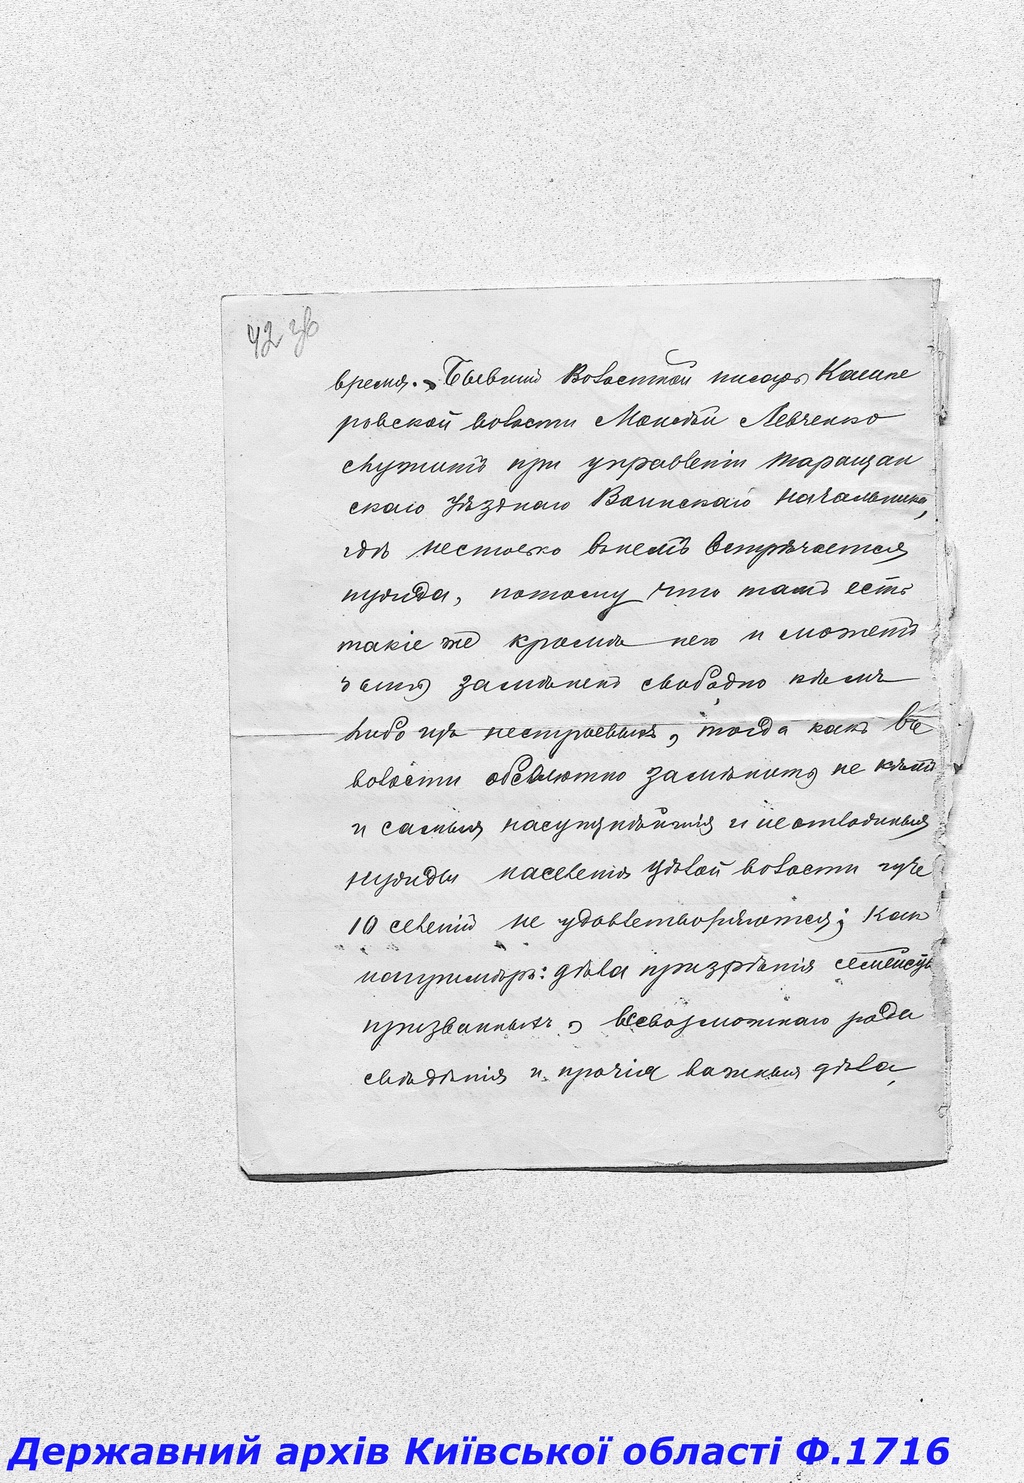 42 зв
время. Бывшій Волостной писарь Кашпе
ровской волости Мокѣй Левченко
служитъ при управленіи Таращан
скаго Уѣзднаго Воинскаго Начальника,
гдѣ нестолько внемъ встрѣчается
нужда, потому что тамъ есть
такіе же кромѣ него и можетъ
быть замѣненъ свободно кѣмъ
либо изъ нестроевыхъ, тогда какъ въ
волости абсолютно замѣнить не кѣмъ
и самыя насущнѣйшія и неотложныя
нужды населенія цѣлой волости изъ
10 селеній не удовлетворяются; какъ
напримѣръ: дѣла призрѣнія семействъ
призванныхъ, всевозможнаго рода
свѣдѣнія и прочія важныя дѣла,
Державний архів Київської області Ф.1716